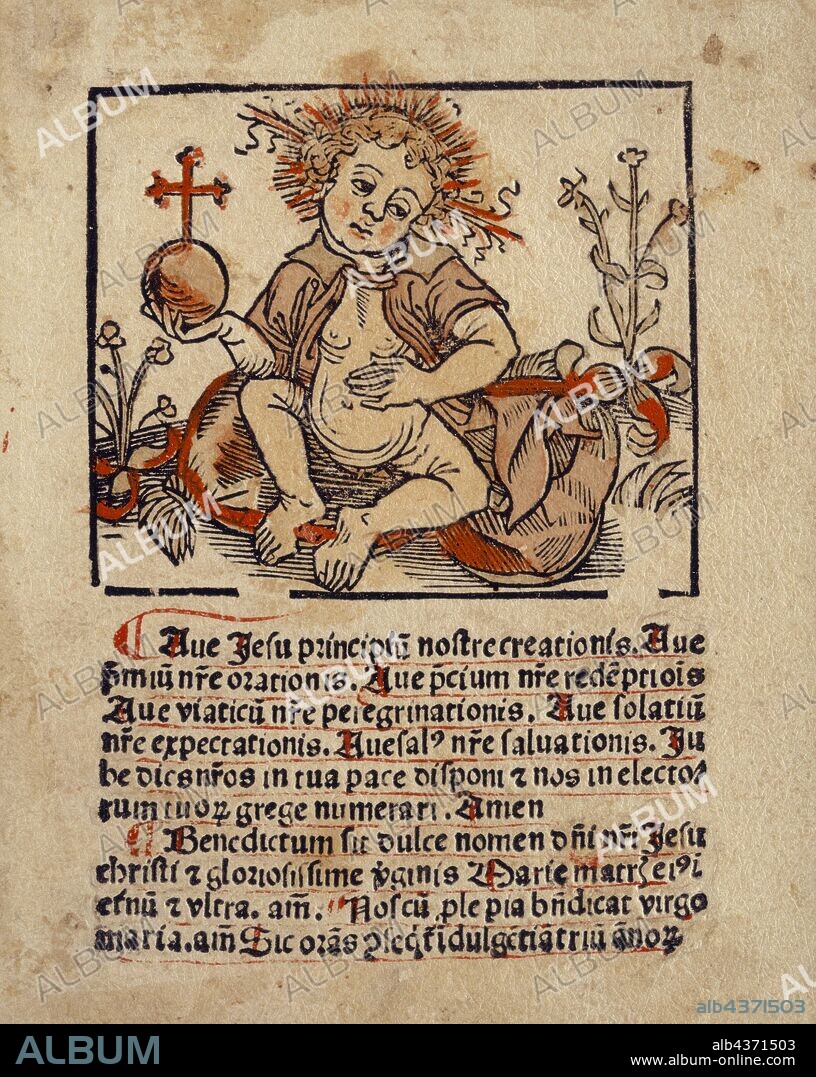 Aue Jesu principiū nostre creationis. Aue
p̄miū nr̄e orationis. Aue p̄cium nr̄e redēptiōis
Aue viaticū nr̄e peregrinationis. Aue solatiū
nr̄e expectationis. Aue salꝰ nr̄e saluationis. Ju
be dies nr̄os in tua pace disponi ⁊ nos in electo⸗
rum tuoꝝ grege numerari. Amen
Benedictum sit dulce nomen dn̄i nr̄i Jesu
christi ⁊ gloriosissime v̓ginis Marie matr̄ eiꝰ ī
etnū ⁊ vltra. am̄. Nos cū ꝓle pia bn̄dicat virgo
maria. am̄ Sic orās
alb4371503
ALBUM
alb4371503
www.album-online.com